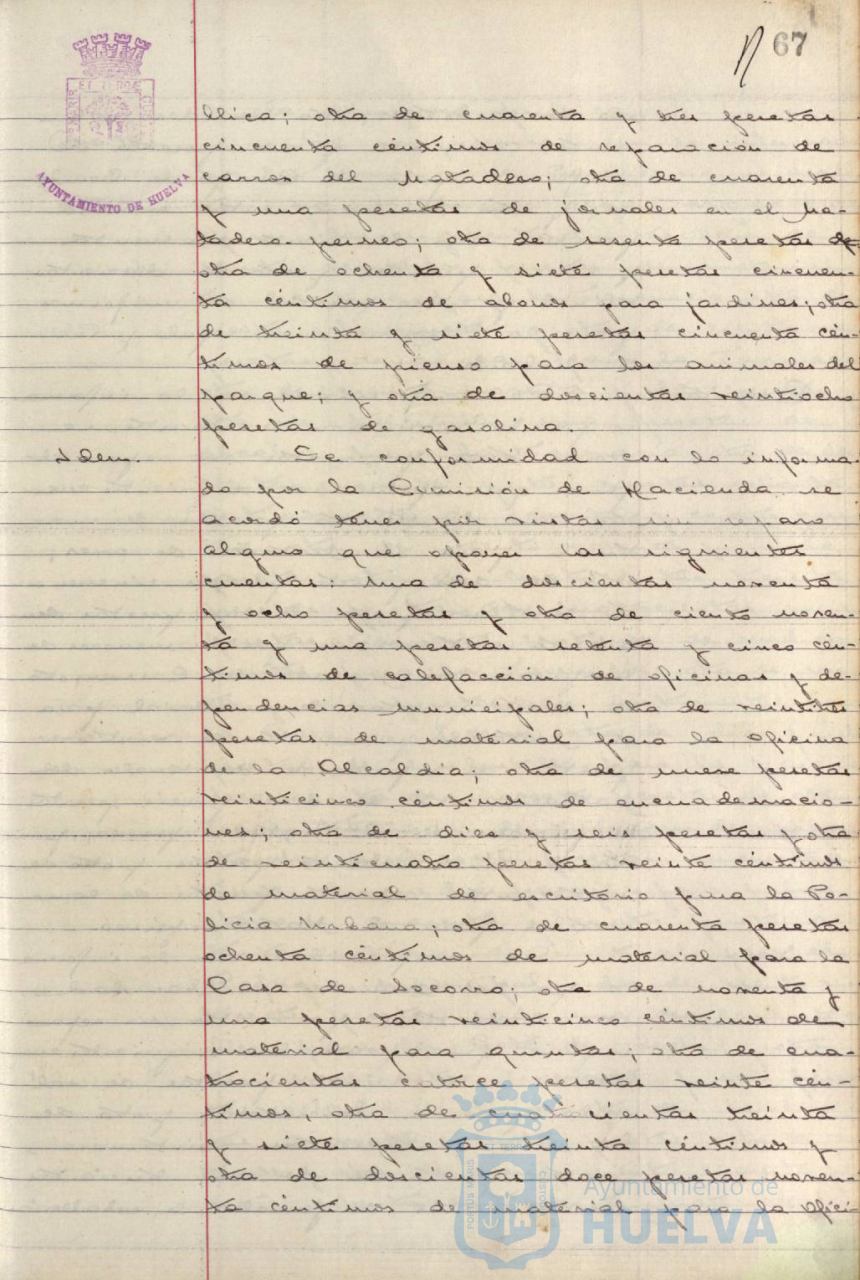 67
AYUNTAMIENTO DE HUELVA
blica; otra de cuarenta y tres pesetas
cincuenta céntimos de reparación de
carros del Matadero; otra de cuarenta
y una pesetas de jornales en el Ma-
tadero perneo; otra de sesenta pesetas
otra de ochenta y siete pesetas cincuen-
ta céntimos de abonos para jardines; otra
de treinta y siete pesetas cincuenta cén-
timos de pienso para los animales del
parque; y otra de doscientas veintiocho
pesetas de gasolina.
Idem.
De conformidad con lo informa-
do por la Comisión de Hacienda se
acordó tener por vistas sin reparo
alguno que oponer las siguientes
cuentas: una de doscientas noventa
y ocho pesetas y otra de ciento noven-
ta y una pesetas setenta y cinco cén-
timos de calefacción de oficinas y de-
pendencias municipales; otra de veintitres
pesetas de material para la oficina
de la Alcaldía; otra de nueve pesetas
veinticinco céntimos de encuadernacio-
nes; otra de diez y seis pesetas y otra
de veinticuatro pesetas veinte céntimos
de material de escritorio para la Po-
licia Urbana; otra de cuarenta pesetas
ochenta céntimos de material para la
Casa de Socorro; otra de noventa y
una pesetas veinticinco céntimos de
material para quintas; otra de cua-
trocientas catorce pesetas veinte cén-
timos, otra de cuatrocientas treinta
y siete pesetas treinta céntimos y
otra de doscientas doce pesetas noven-
ta céntimos de material para la ofici-
Ayuntamiento de
HUELVA